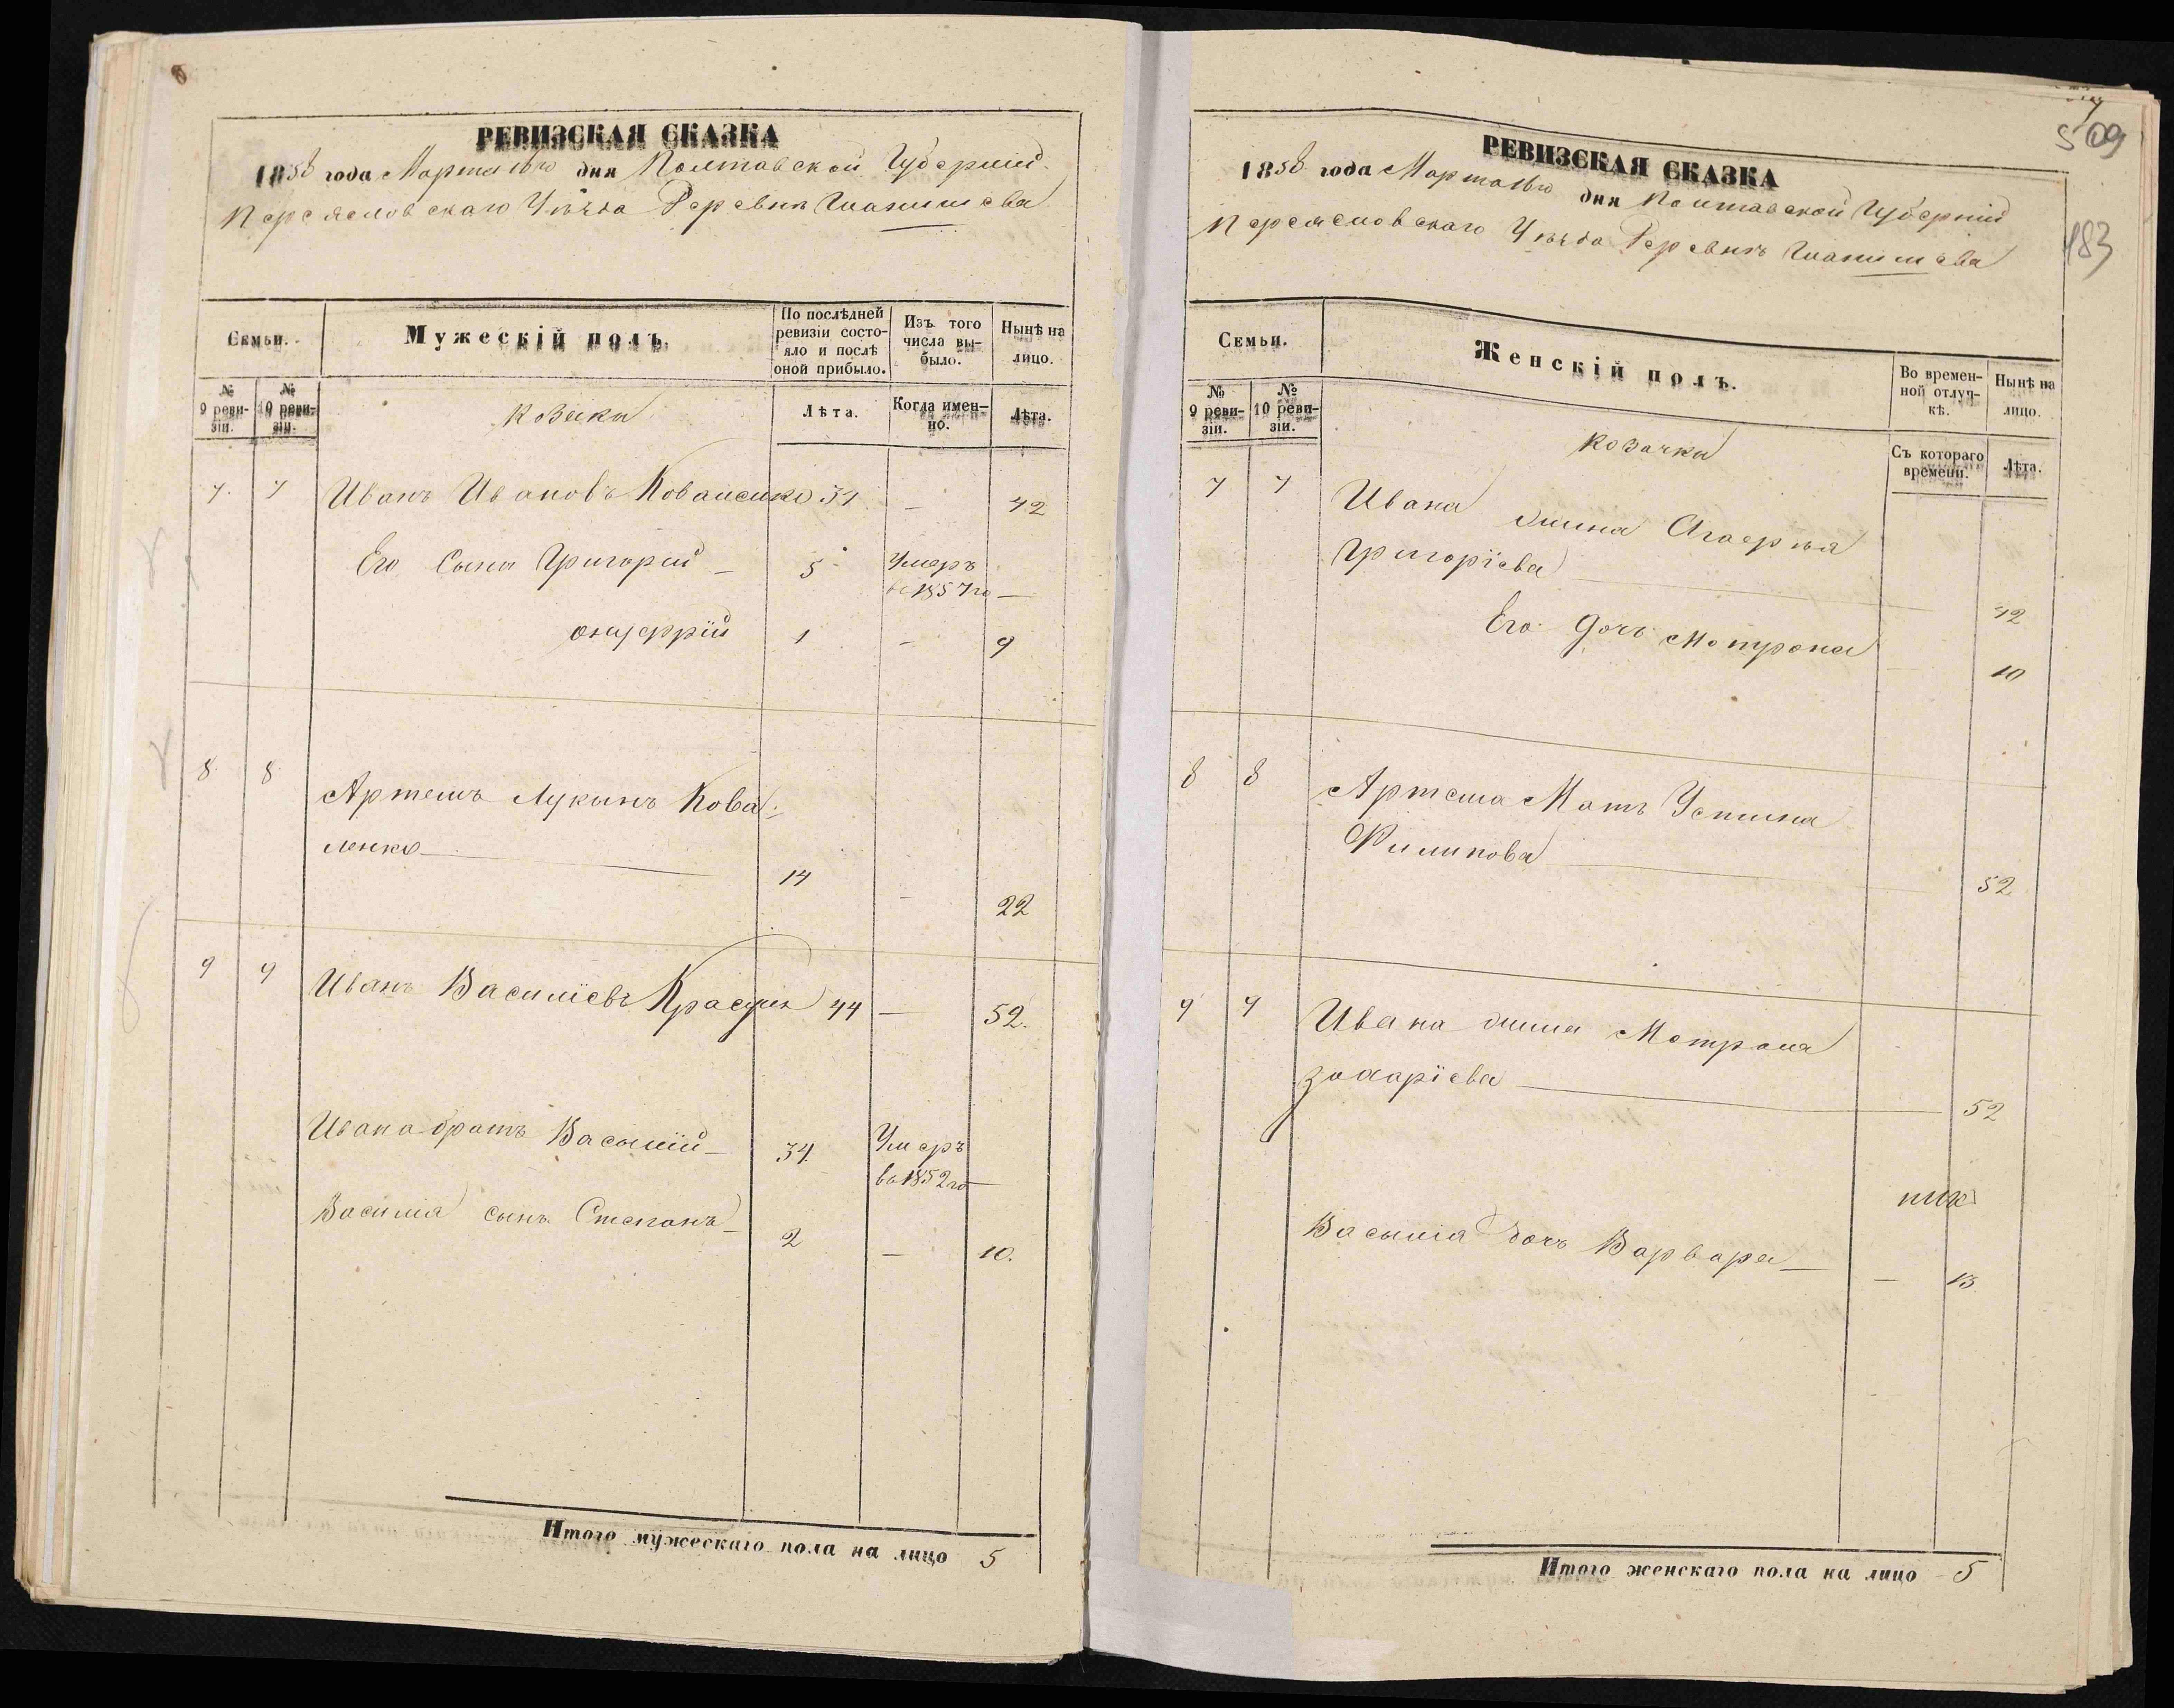 РЕВИЗСКАЯ СКАЗКА
1858 года Марта 16го дня Полтавской Губерніи
Переясловскаго Уѣзда Деревнѣ
Семьи.
Мужескій полъ.
По послѣдней ревизіи состо-
яло и послѣ
оной прибыло.
Изъ того
числа вы-
было.
Нынѣ на
лицо.
№
9 реви-
зіи.
№
10 реви-
зіи.
Козаки
Лѣта.
Когда имен-
но.
Лѣта.
7. 7 Иванъ Ивановъ Коваленко 34 – 42
Его Сыны Григорий – 5 Умеръ
в 1857го –
Онуфрій 1 – 9
8 8 Артемъ Лукынъ Кова-
ленко 14 – 22
9 9 Иванъ Василіевъ 44 – 52.
Ивана братъ Васылій – 34 Умеръ
в 1852го –
Василія сынъ Степанъ – 2 – 10.
Итого мужескаго пола на лицо 5
509
183
РЕВИЗСКАЯ СКАЗКА
1858 года Марта 16го дня Полтавской Губерніи
Переясловскаго Уѣзда Деревнѣ
Семьи.
Женскій полъ.
Во времен-
ной отлуч-
кѣ.
Нынѣ на
лицо.
№
9 реви-
зіи.
№
10 реви-
зіи.
Козачки
Съ котораго
времени.
Лѣта.
7 7 Ивана жина
Григоріева 42
Его дочь Мотрона – 10
8 8 Артема Мать Устина
Филипова 52
9 9 Ивана жина Мотрона
Захаріева 52
Васылія дочь Варвара – 13
Итого женскаго пола на лицо 5